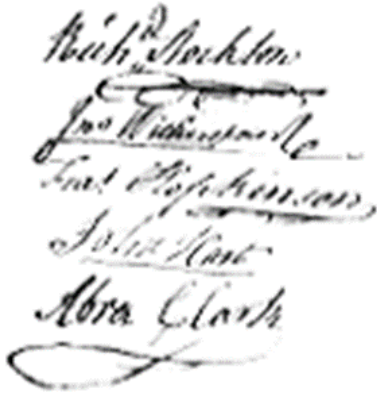 Richd Stockton
Jno Witherspoon
Fras Hopkinson
John Hart
Abra Clark